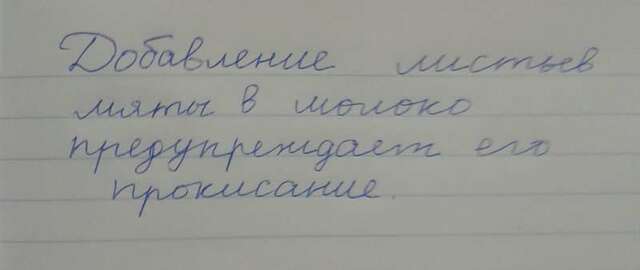 Добавление листьев
мяты в молоко
предупреждает его
прокисание.